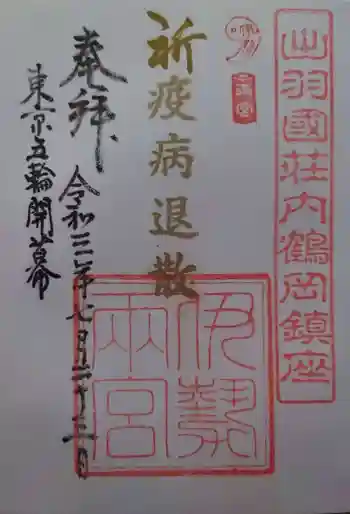 出羽國荘内鶴岡鎮座
祈疫病退散
伊勢
兩宮
奉拝
令和三年七月二十三日
東京五輪開幕